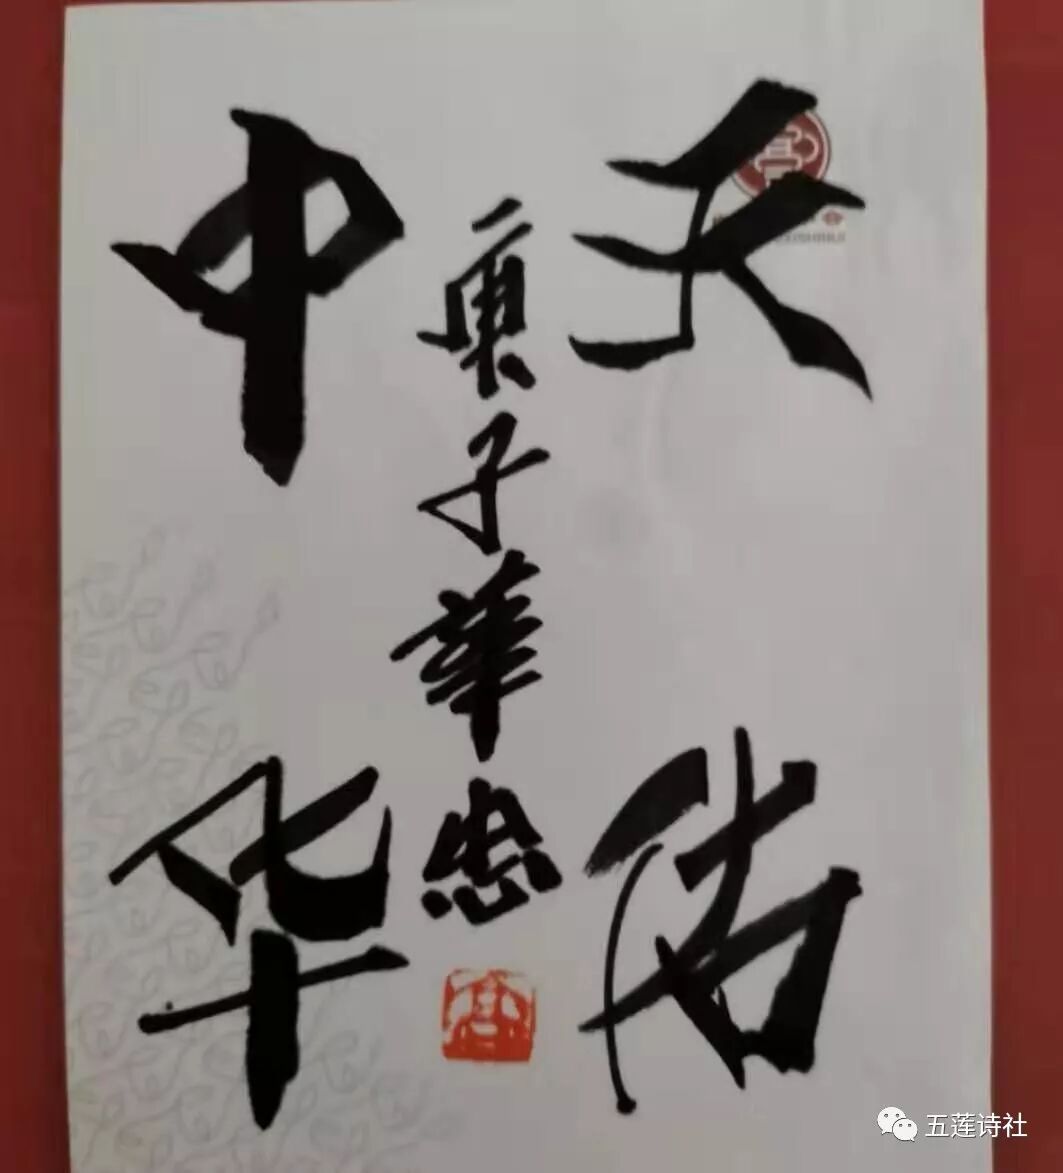 天佑
中华
庚子華忠
五莲诗社